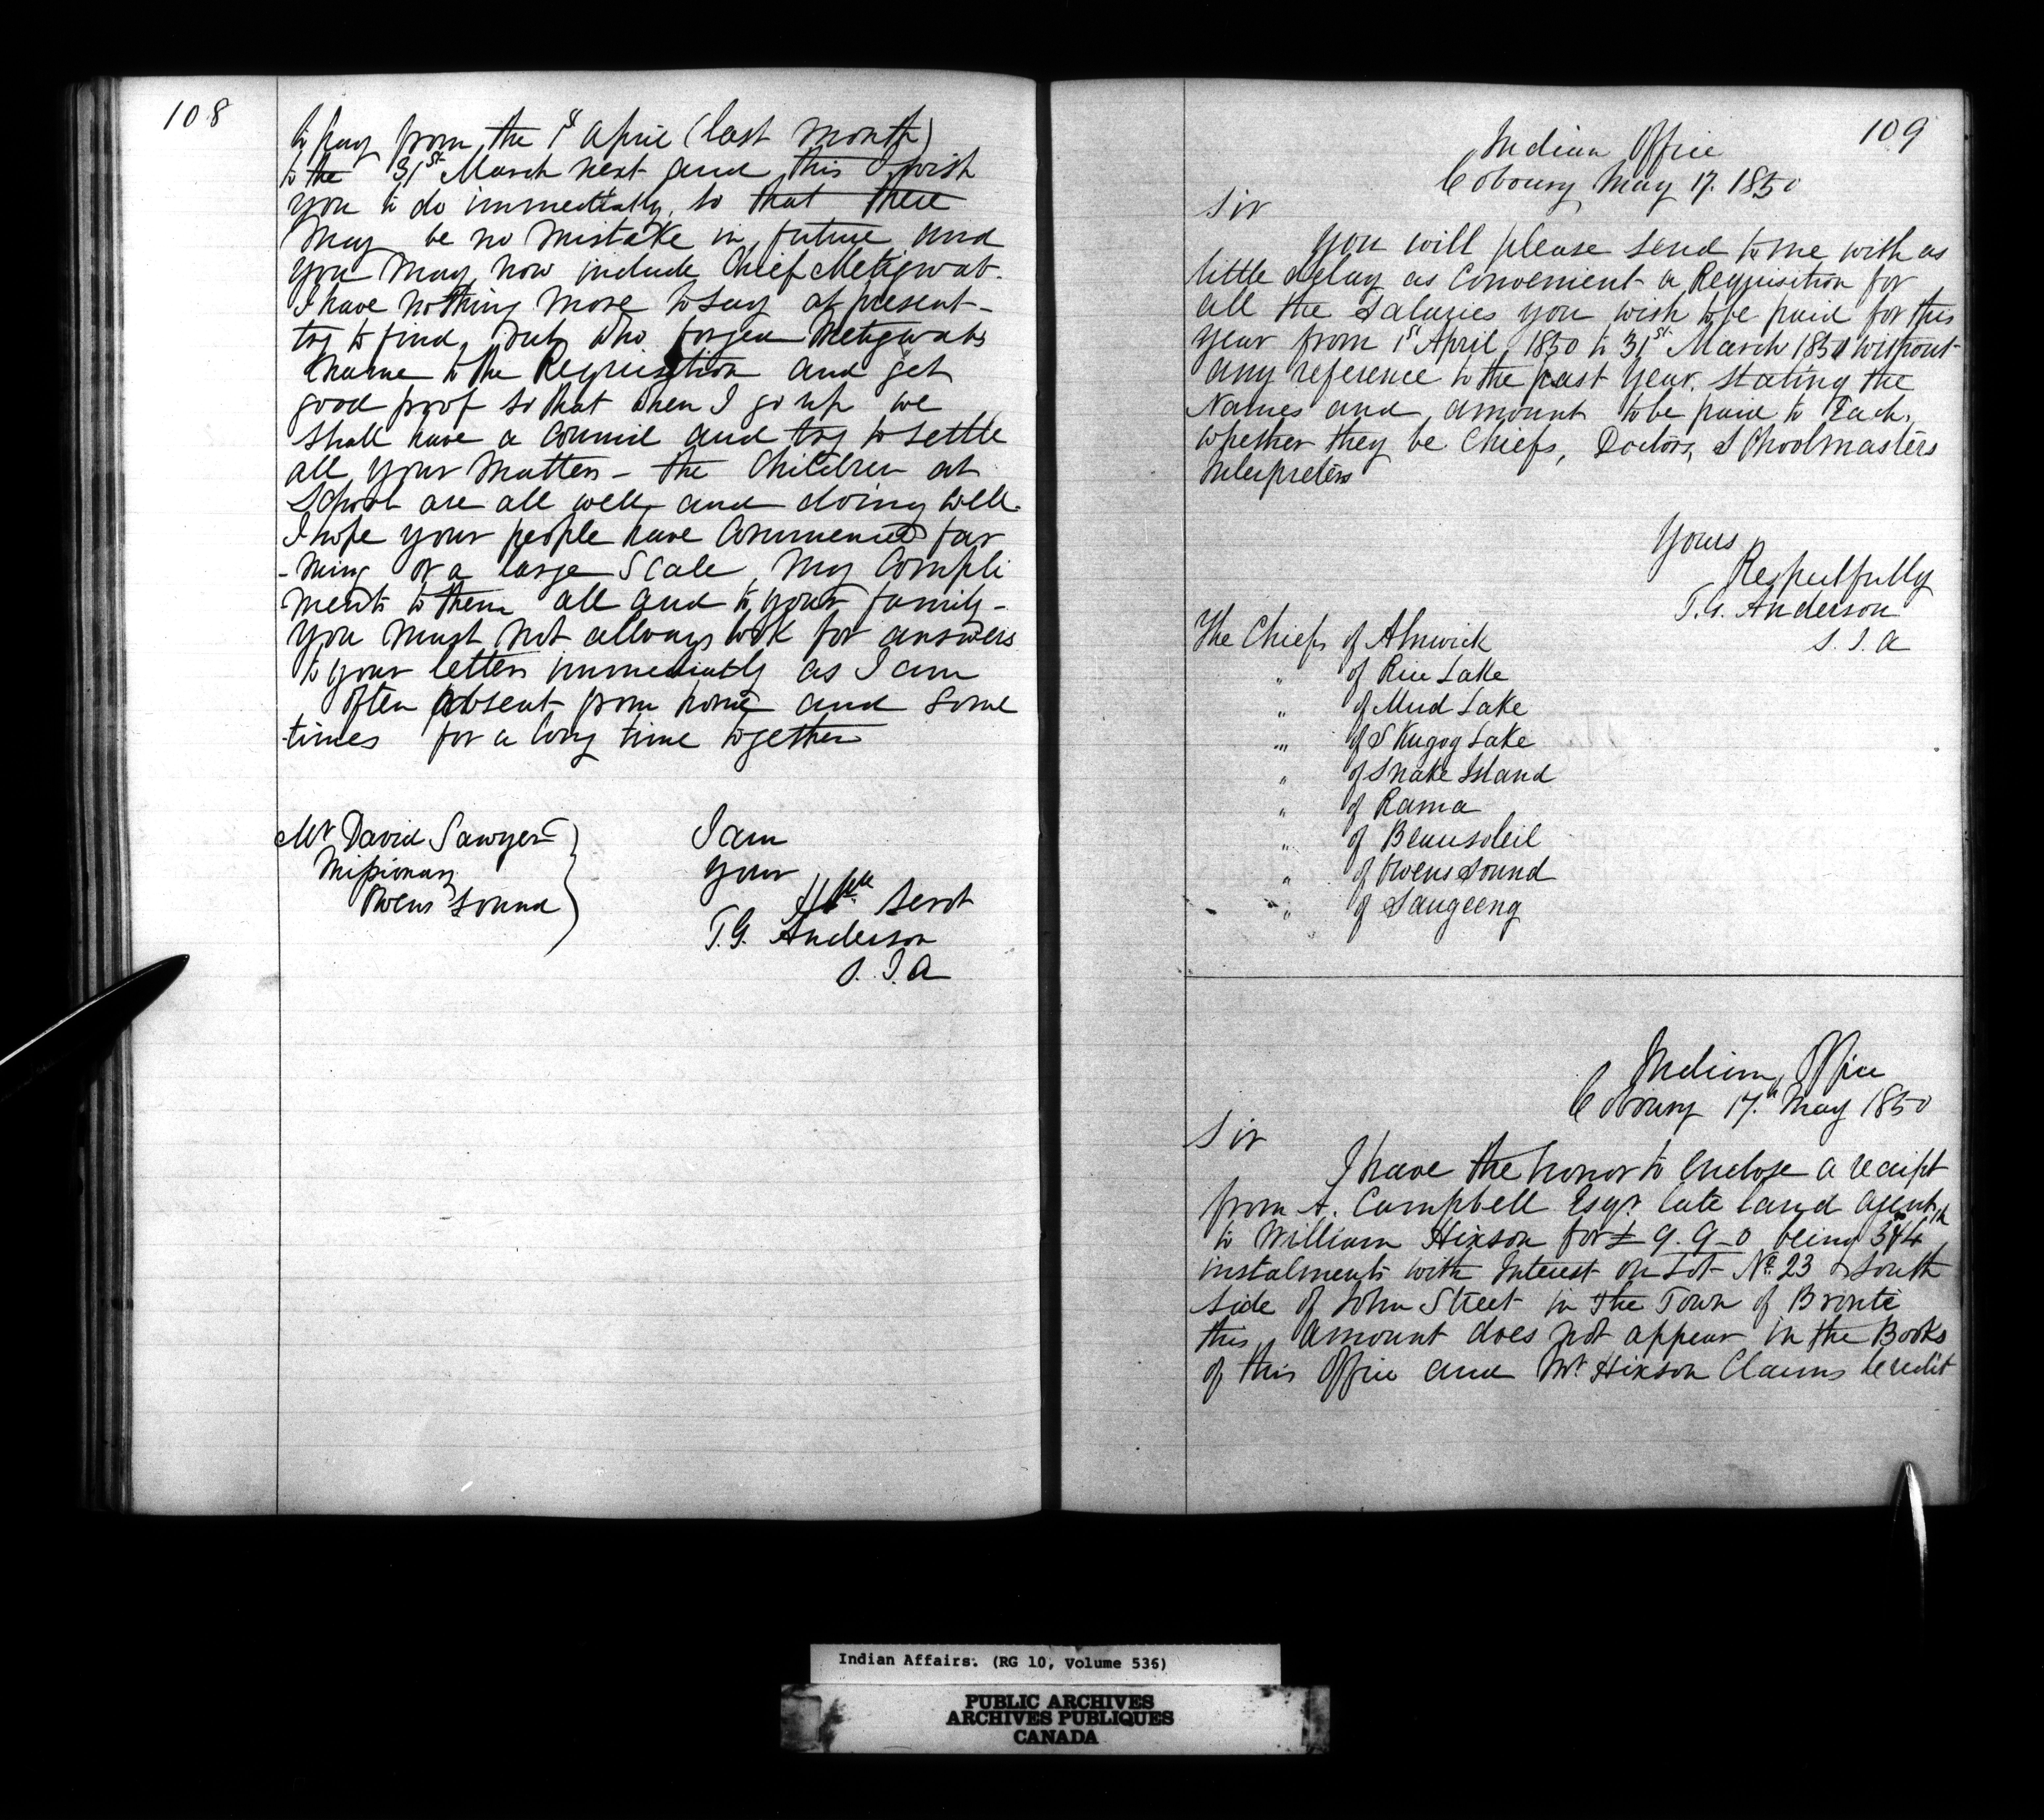 108
to pay from the 1st April (last month)
to the 31st March next and this I wish
you to do immediately, so that there
may be no mistake in future and
you may now include Chief Metigwab.
I have nothing more to say at present -
try to find out who forged Metigwabs
name to the Requisition and get
good proof so that when I go up we
shall have a Council and try to settle
all your matters - the Children at
School are all well and doing well.
I hope your people have Commenced far
-ming on a large Scale, My Compli
ments to them all and to your family -
you must not allways look for answers
to your letters immediately as I am
often absent from home and some
-times for a long time together
Mr David Sawyer
Missionary
Owens Sound
I am
your
Hble Servt
T.G. Anderson
S. I. A
109
Indian Office
Cobourg May 17. 1850
Sir
You will please send to me with as
little delay as Convenient a Requisition for
all the Salaries you wish to be paid for this
year from 1st April 1850 to 31st March 1851 without
any reference to the past year. stating the
Names and amount to be paid to Each,
whether they be Chiefs, Doctors, Schoolmasters
Interpreters
Yours
Respectfully
T.G. Anderson
S. I. A
The Chiefs of Alnwick
" of Rice Lake
" of Mud Lake
" of Skugog Lake
" of Snake Island
" of Rama
" of Beausoleil
" of Owens Sound
" of Saugeeng
Indian Office
Cobourg 17th May 1850
Sir
I have the honor to enclose a receipt
from A. Campbell Esqr. late land agent
to William Hixson for £ 9. 9 - 0 being 3rd & 4th
instalments with Interest on Lot No. 23 South
side of John Street in the Town of Bronte
this amount does not appear in the Books
of this Office and Mr. Hixson Claims Credit
Indian Affairs. (RG 10, Volume 536)
PUBLIC ARCHIVES
ARCHIVES PUBLIQUES
CANADA